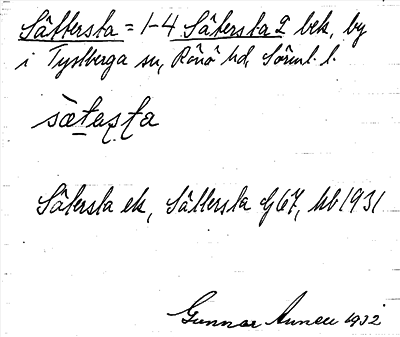 Sättersta = 1-4 Sätersta 2 bek, by
i Tystberga sn, Rönö hd Sörml. l.
sætasta
Sätersta ek, Sättersta dj 67, kb 1931
Gunnar 1932